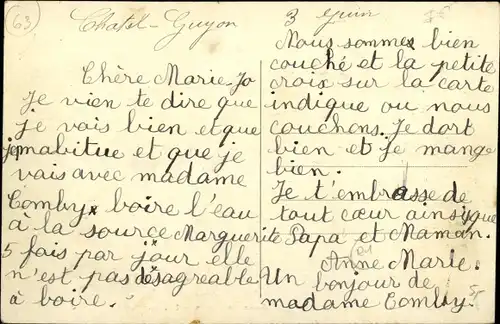 63
Chatel-Guyon 3 Juin
Chère Marie Jo
Je vien te dire que
je vais bien et que
je mabitue et que je
vais avec madame
Comby boire l'eau
à la source Marguerite
5 fois par jour elle
n'est pas désagreable
à boire.
Nous sommes bien
couché et la petite
croix sur la carte
indique ou nous
couchons. Je dort
bien et je mange
bien.
Je t'embrasse de
tout cœur ainsi que
Papa et Maman.
Anne Marie.
Un bonjour de
madame Comby.